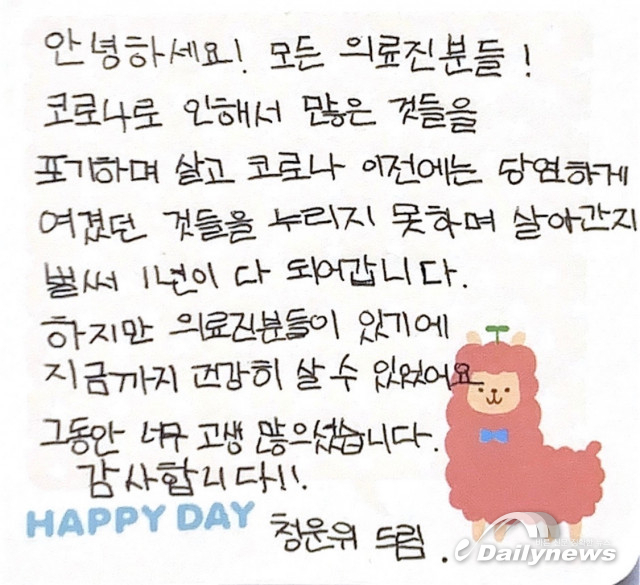 안녕하세요! 모든 의료진분들!
코로나로 인해서 많은 것들을
포기하며 살고 코로나 이전에는 당연하게
여겼던 것들을 누리지 못하며 살아간지
벌써 1년이 다 되어갑니다.
하지만 의료진분들이 있기에
지금까지 건강히 살 수 있었어요
그동안 너무 고생 많으셨습니다.
감사합니다!!.
HAPPY DAY 청운위 드림.
eDailynews